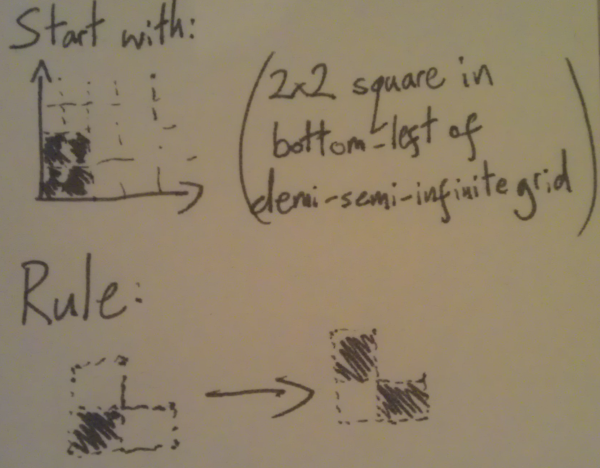 Start with:
(2x2 square in
bottom-left of
demi-semi-infinite grid)
Rule: